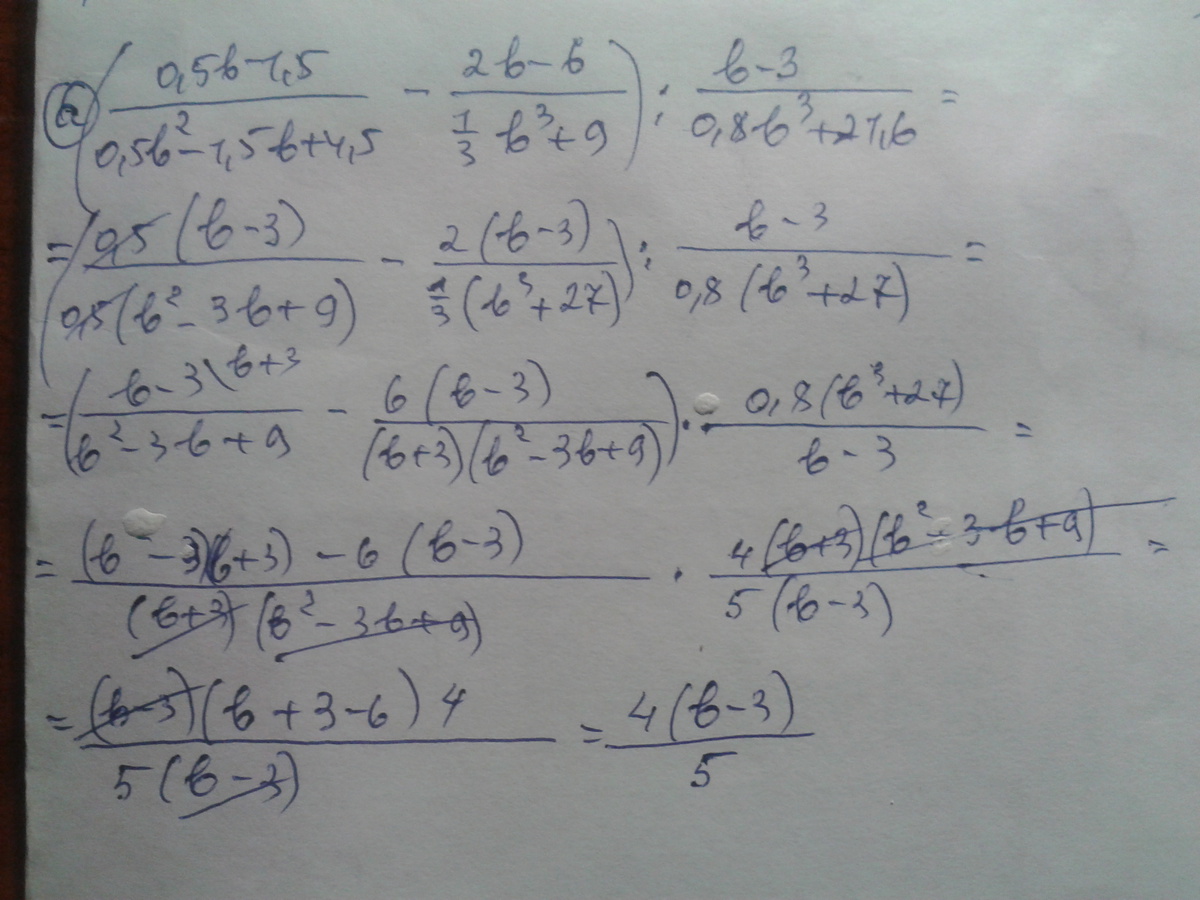 а) ( (0,5b-1,5)/(0,5b²-1,5b+4,5) - (2b-6)/(1/3 b³+9) ) : (b-3)/(0,8b³+21,6) =
= ( 0,5(b-3)/(0,5(b²-3b+9)) - 2(b-3)/(1/3(b³+27)) ) : (b-3)/(0,8(b³+27)) =
= ( (b-3\b+3)/(b²-3b+9) - 6(b-3)/((b+3)(b²-3b+9)) ) · 0,8(b³+27)/(b-3) =
= ((b-3)(b+3)-6(b-3))/((b+3)(b²-3b+9)) · 4(b+3)(b²-3b+9)/(5(b-3)) =
= (b-3)(b+3-6)4/(5(b-3)) = 4(b-3)/5